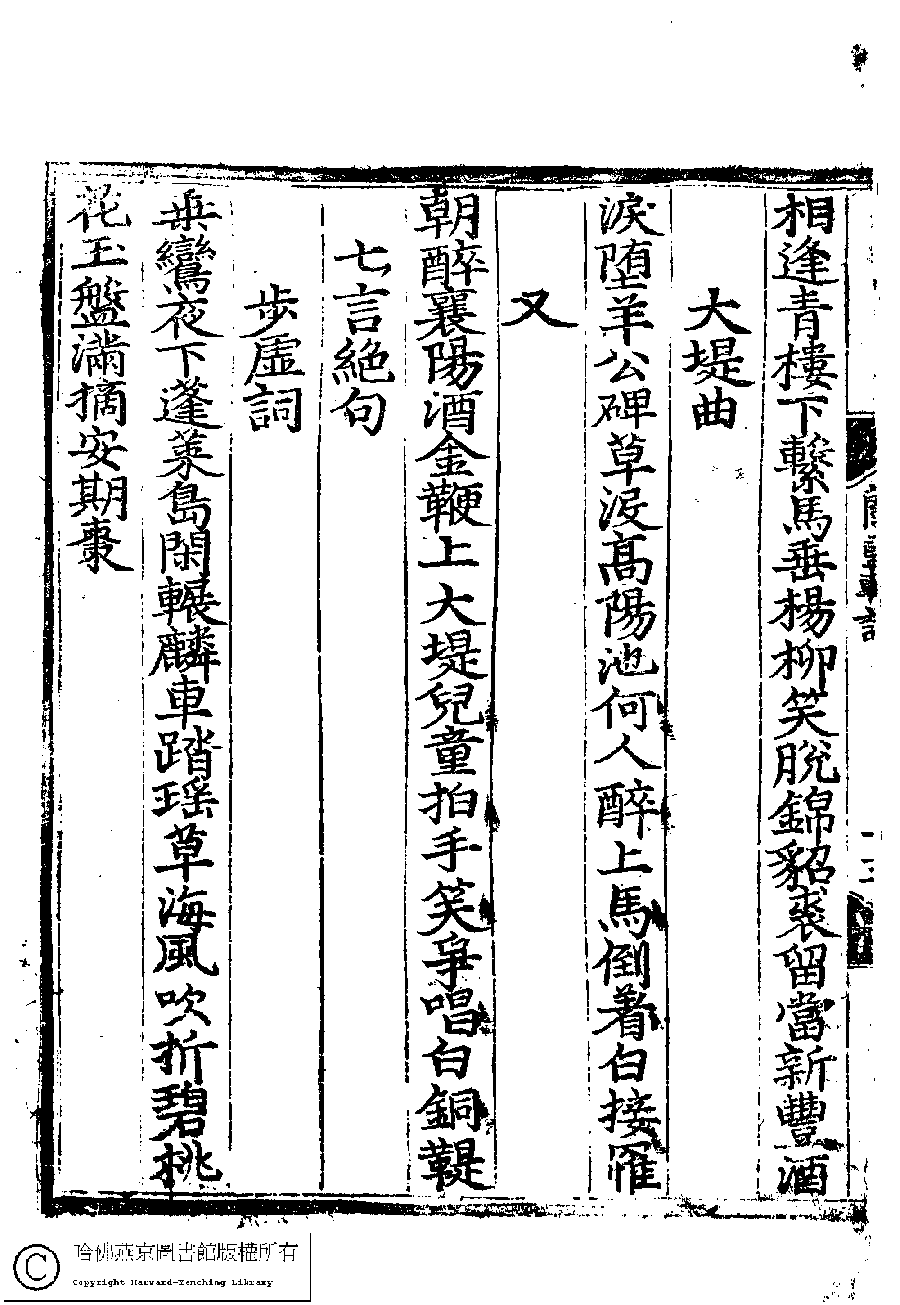 相逢青樓下繫馬垂楊柳笑脫錦貂裘留當新豐酒
大堤曲
淚墮羊公碑草沒高陽池何人醉上馬倒着白接䍦
又
朝醉襄陽酒金鞭上大堤兒童拍手笑爭唱白銅鞮
七言絕句
步虛詞
乗鸞夜下蓬萊島閑輾麟車踏瑶草海風吹折碧桃
花玉盤滿摘安期棗
哈佛燕京圖書館版權所有
Copyright Harvard-Yenching Library